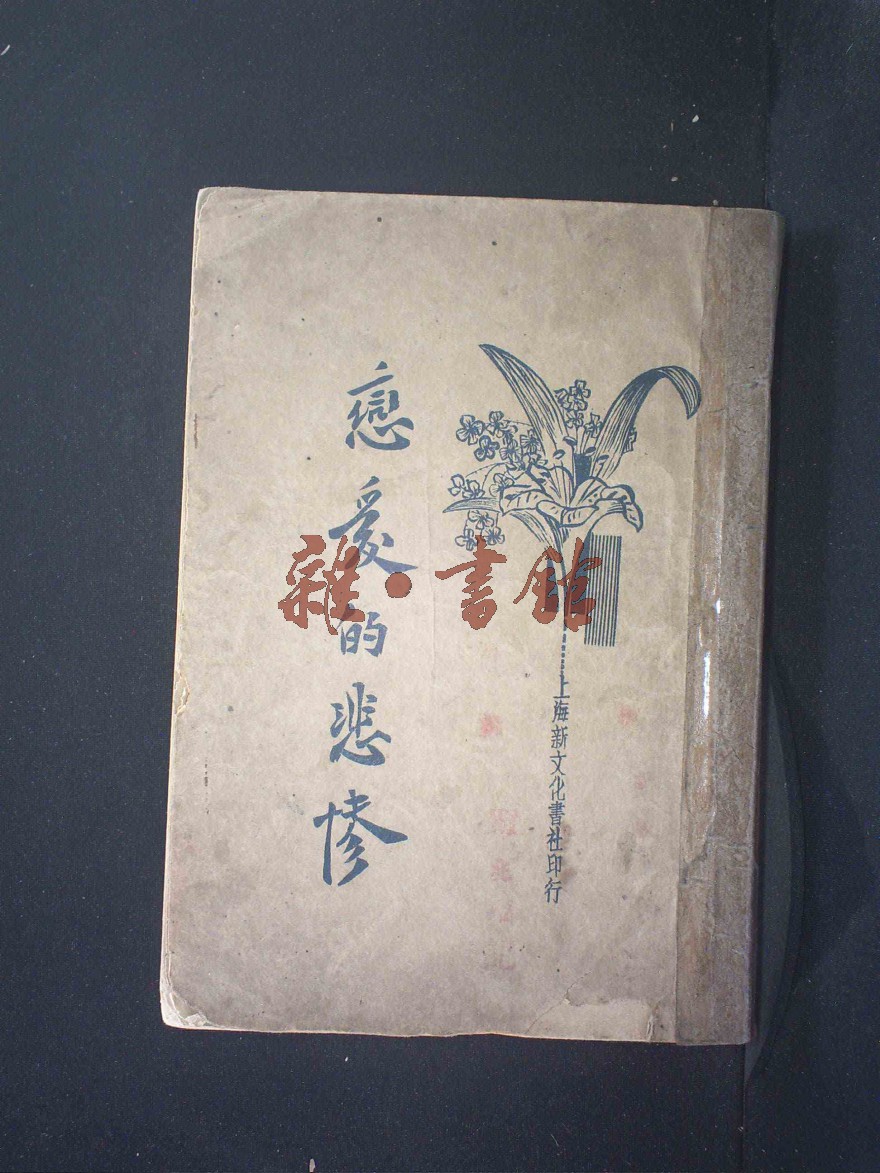 戀愛的悲惨
上海新文化書社印行
雜·書館